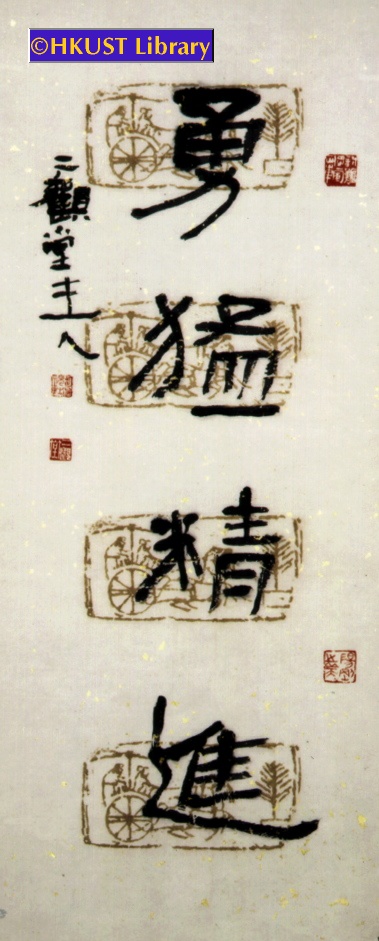 ©HKUST Library
勇猛精進
二觀堂主人